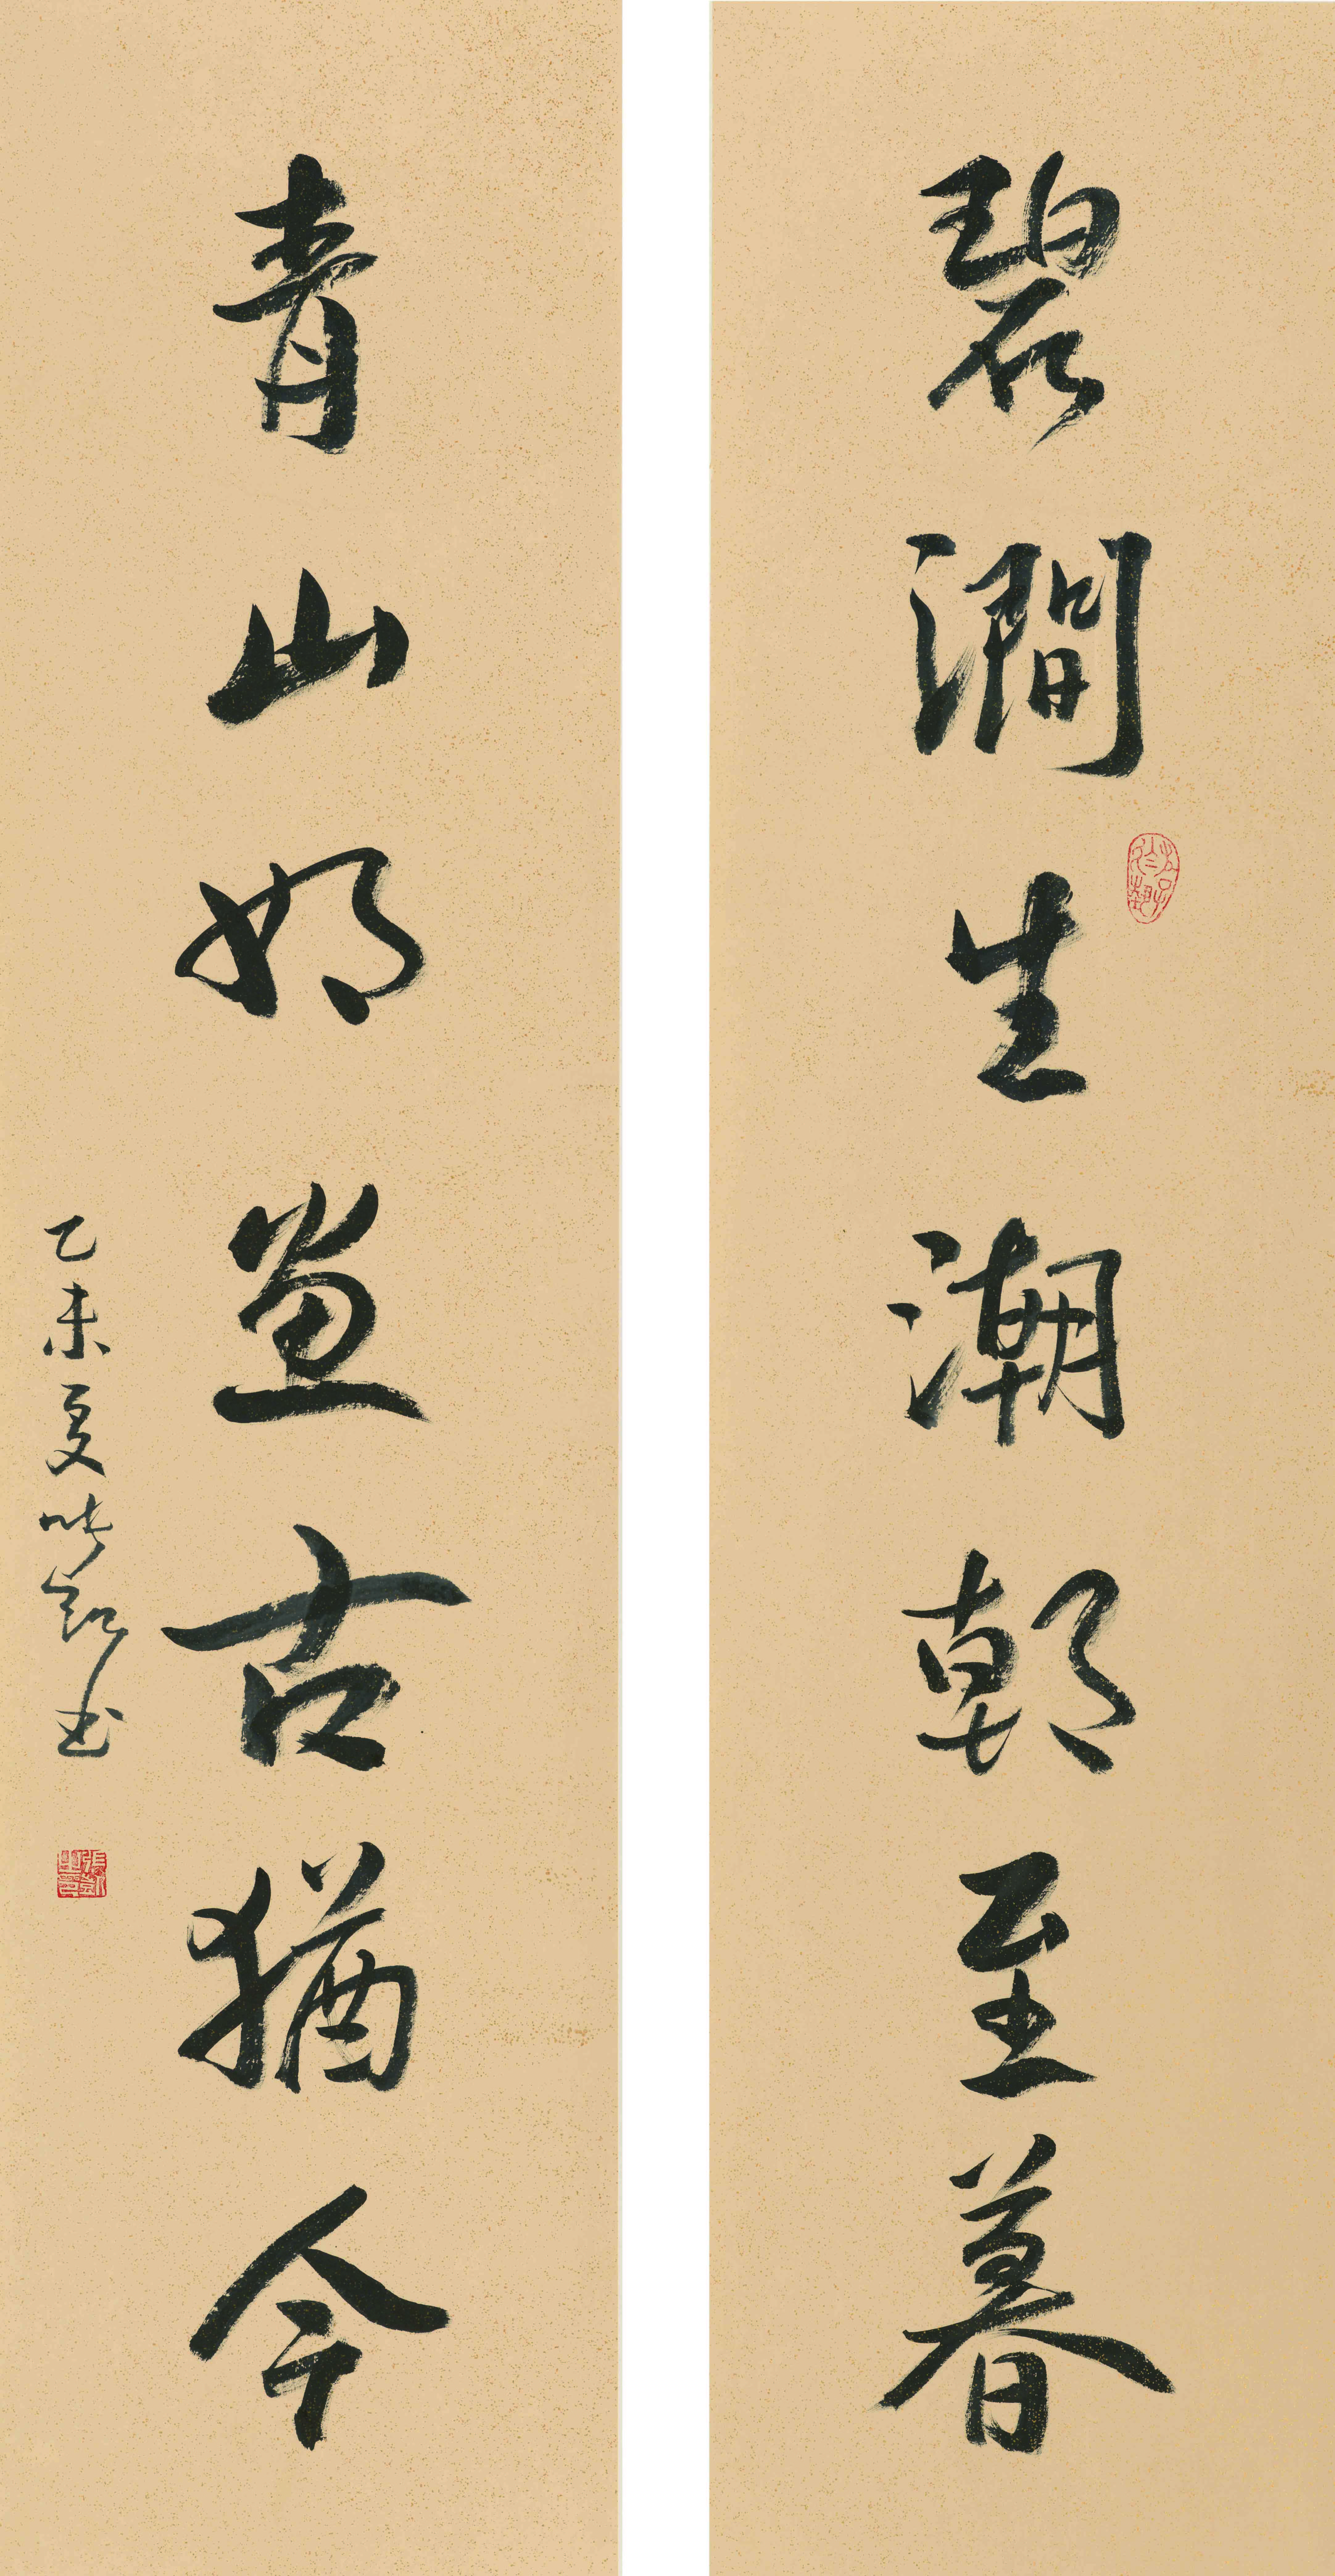 碧澗生潮朝至暮
青山如畫古猶今
乙未夏時凱書